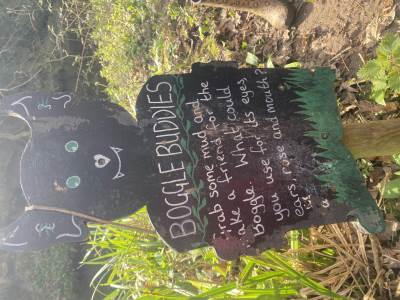 BOGGLE BUDDIES
rab some mud and
ake a friend for the
boggle. What could
you use for its eyes,
ears, nose and mouth?